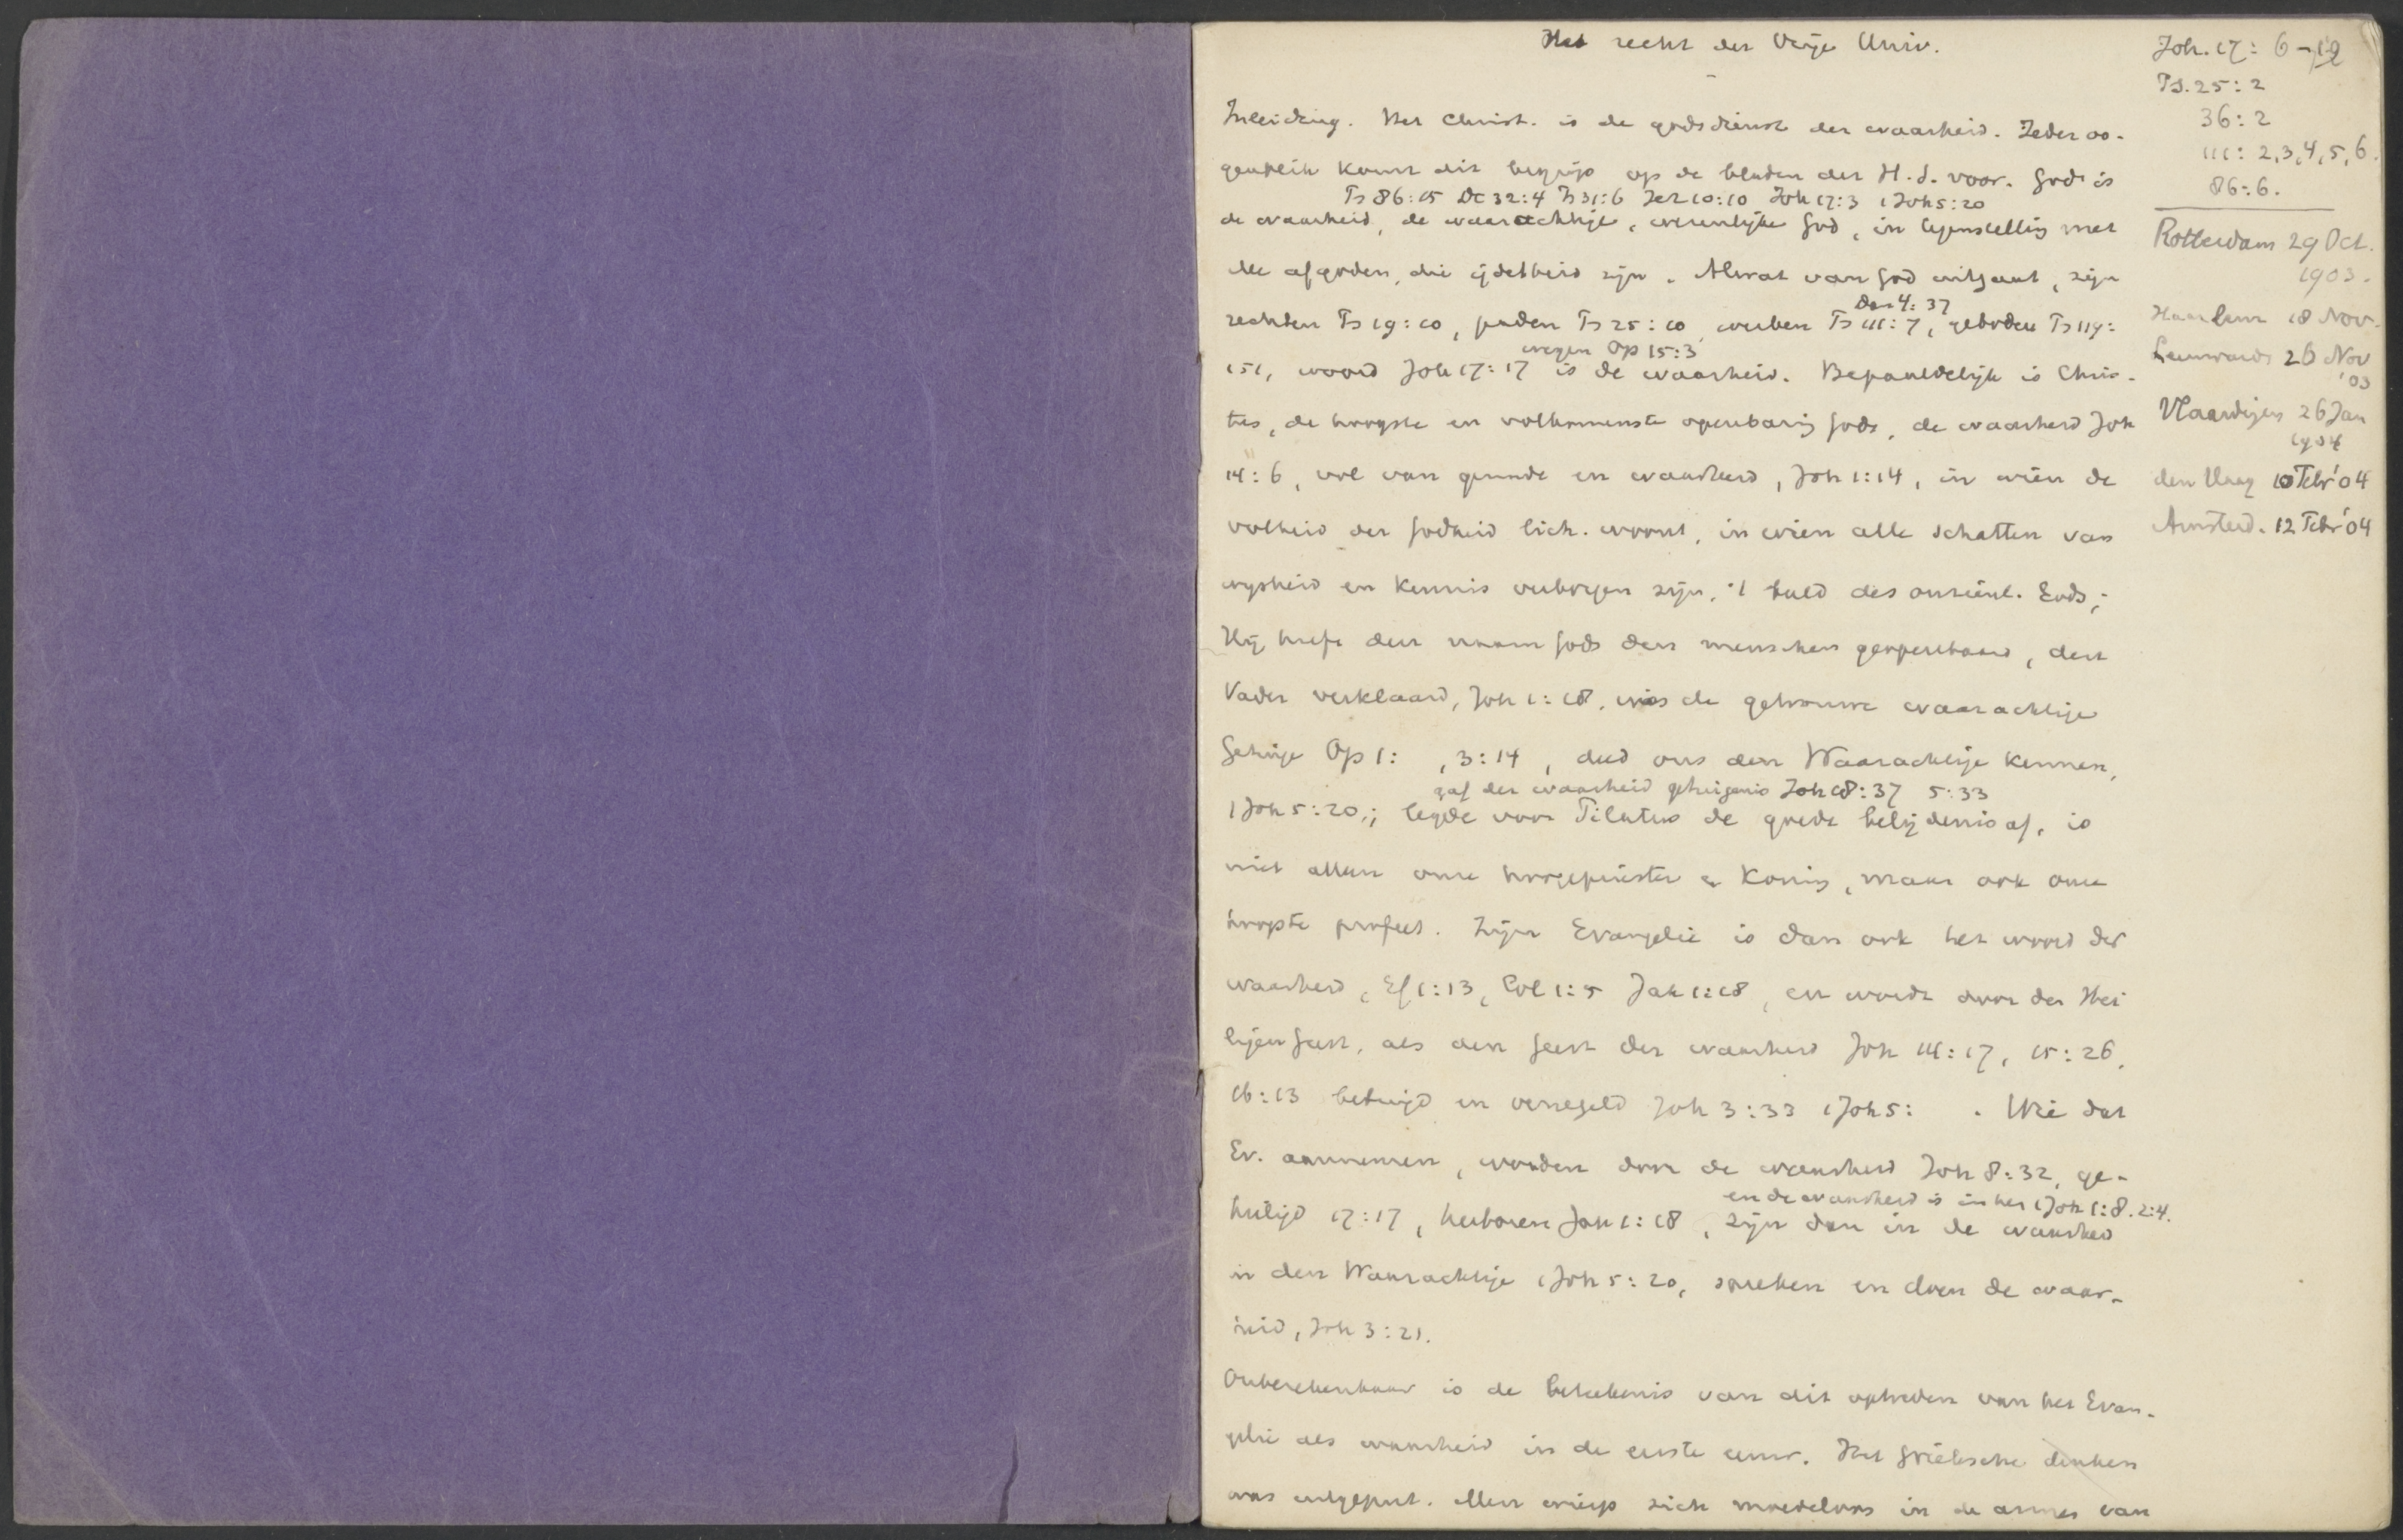 Het recht der Vrije Univ.
Inleiding. Het Christ. is de godsdienst der waarheid. Ieder oo-
genblik komt dit begrip op de bladen der H.S. voor. God is
Ps 86:15 Dt 32:4 Ps 31:6 Jer 10:10 Joh 17:3 1 Joh 5:20
de waarheid, de waarachtige, wezenlijke God, in tegenstelling met
de afgoden, die ijdelheid zijn. Alwat van God uitgaat, zijn
Dan 4:37
rechten Ps 19:10, paden Ps 25:10, werken Ps 111:7, geboden Ps 119:
wegen Op 15:3
151, woord Joh 17:17 is de waarheid. Bepaaldelijk is Chris-
tus, de hoogste en volkomenste openbaring Gods, de waarheid Joh
14:6, vol van genade en waarheid, Joh 1:14, in wien de
volheid der Godheid lich. woont, in wien alle schatten van
wijsheid en kennis verborgen zijn, 't beeld des onzienl. Gods;
Hij heeft den naam Gods den menschen geopenbaard, den
Vader verklaard, Joh 1:18, was de getrouwe waarachtige
Getuige Op 1: , 3:14, deed ons den Waarachtige kennen,
gaf der waarheid getuigenis Joh 18:37 5:33
1 Joh 5:20,; legde voor Pilatus de goede belijdenis af, is
niet alleen onze hoogepriester en Koning, maar ook onze
hoogste profeet. Zijn Evangelie is dan ook het woord der
waarheid, Ef 1:13, Col 1:5 Jak 1:18, en wordt door den Hei
ligen Geest, als den Geest der waarheid Joh 14:17, 15:26,
16:13 betuigd en verzegeld Joh 3:33 1 Joh 5: . Wie dat
Ev. aannemen, worden door de waarheid Joh 8:32, ge-
en de waarheid is in hen 1 Joh 1:8. 2:4.
heiligd 17:17, herboren Jak 1:18, zijn dan in de waarheid
in den Waarachtige 1 Joh 5:20, spreken en doen de waar-
heid, Joh 3:21.
Onberekenbaar is de beteekenis van dit optreden van het Evan-
gelie als waarheid in de eerste eeuw. Het Grieksche denken
was uitgeput. Men wierp zich moedeloos in de armen van
Joh. 17: 6-19
Ps. 25:2
36:2
111: 2,3,4,5,6.
86:6.
Rotterdam 29 Oct.
1903.
Haarlem 18 Nov.
Leeuward. 26 Nov
'03
Vlaardingen 26 Jan
1904
den Haag 10 Febr '04
Amsterd. 12 Febr '04